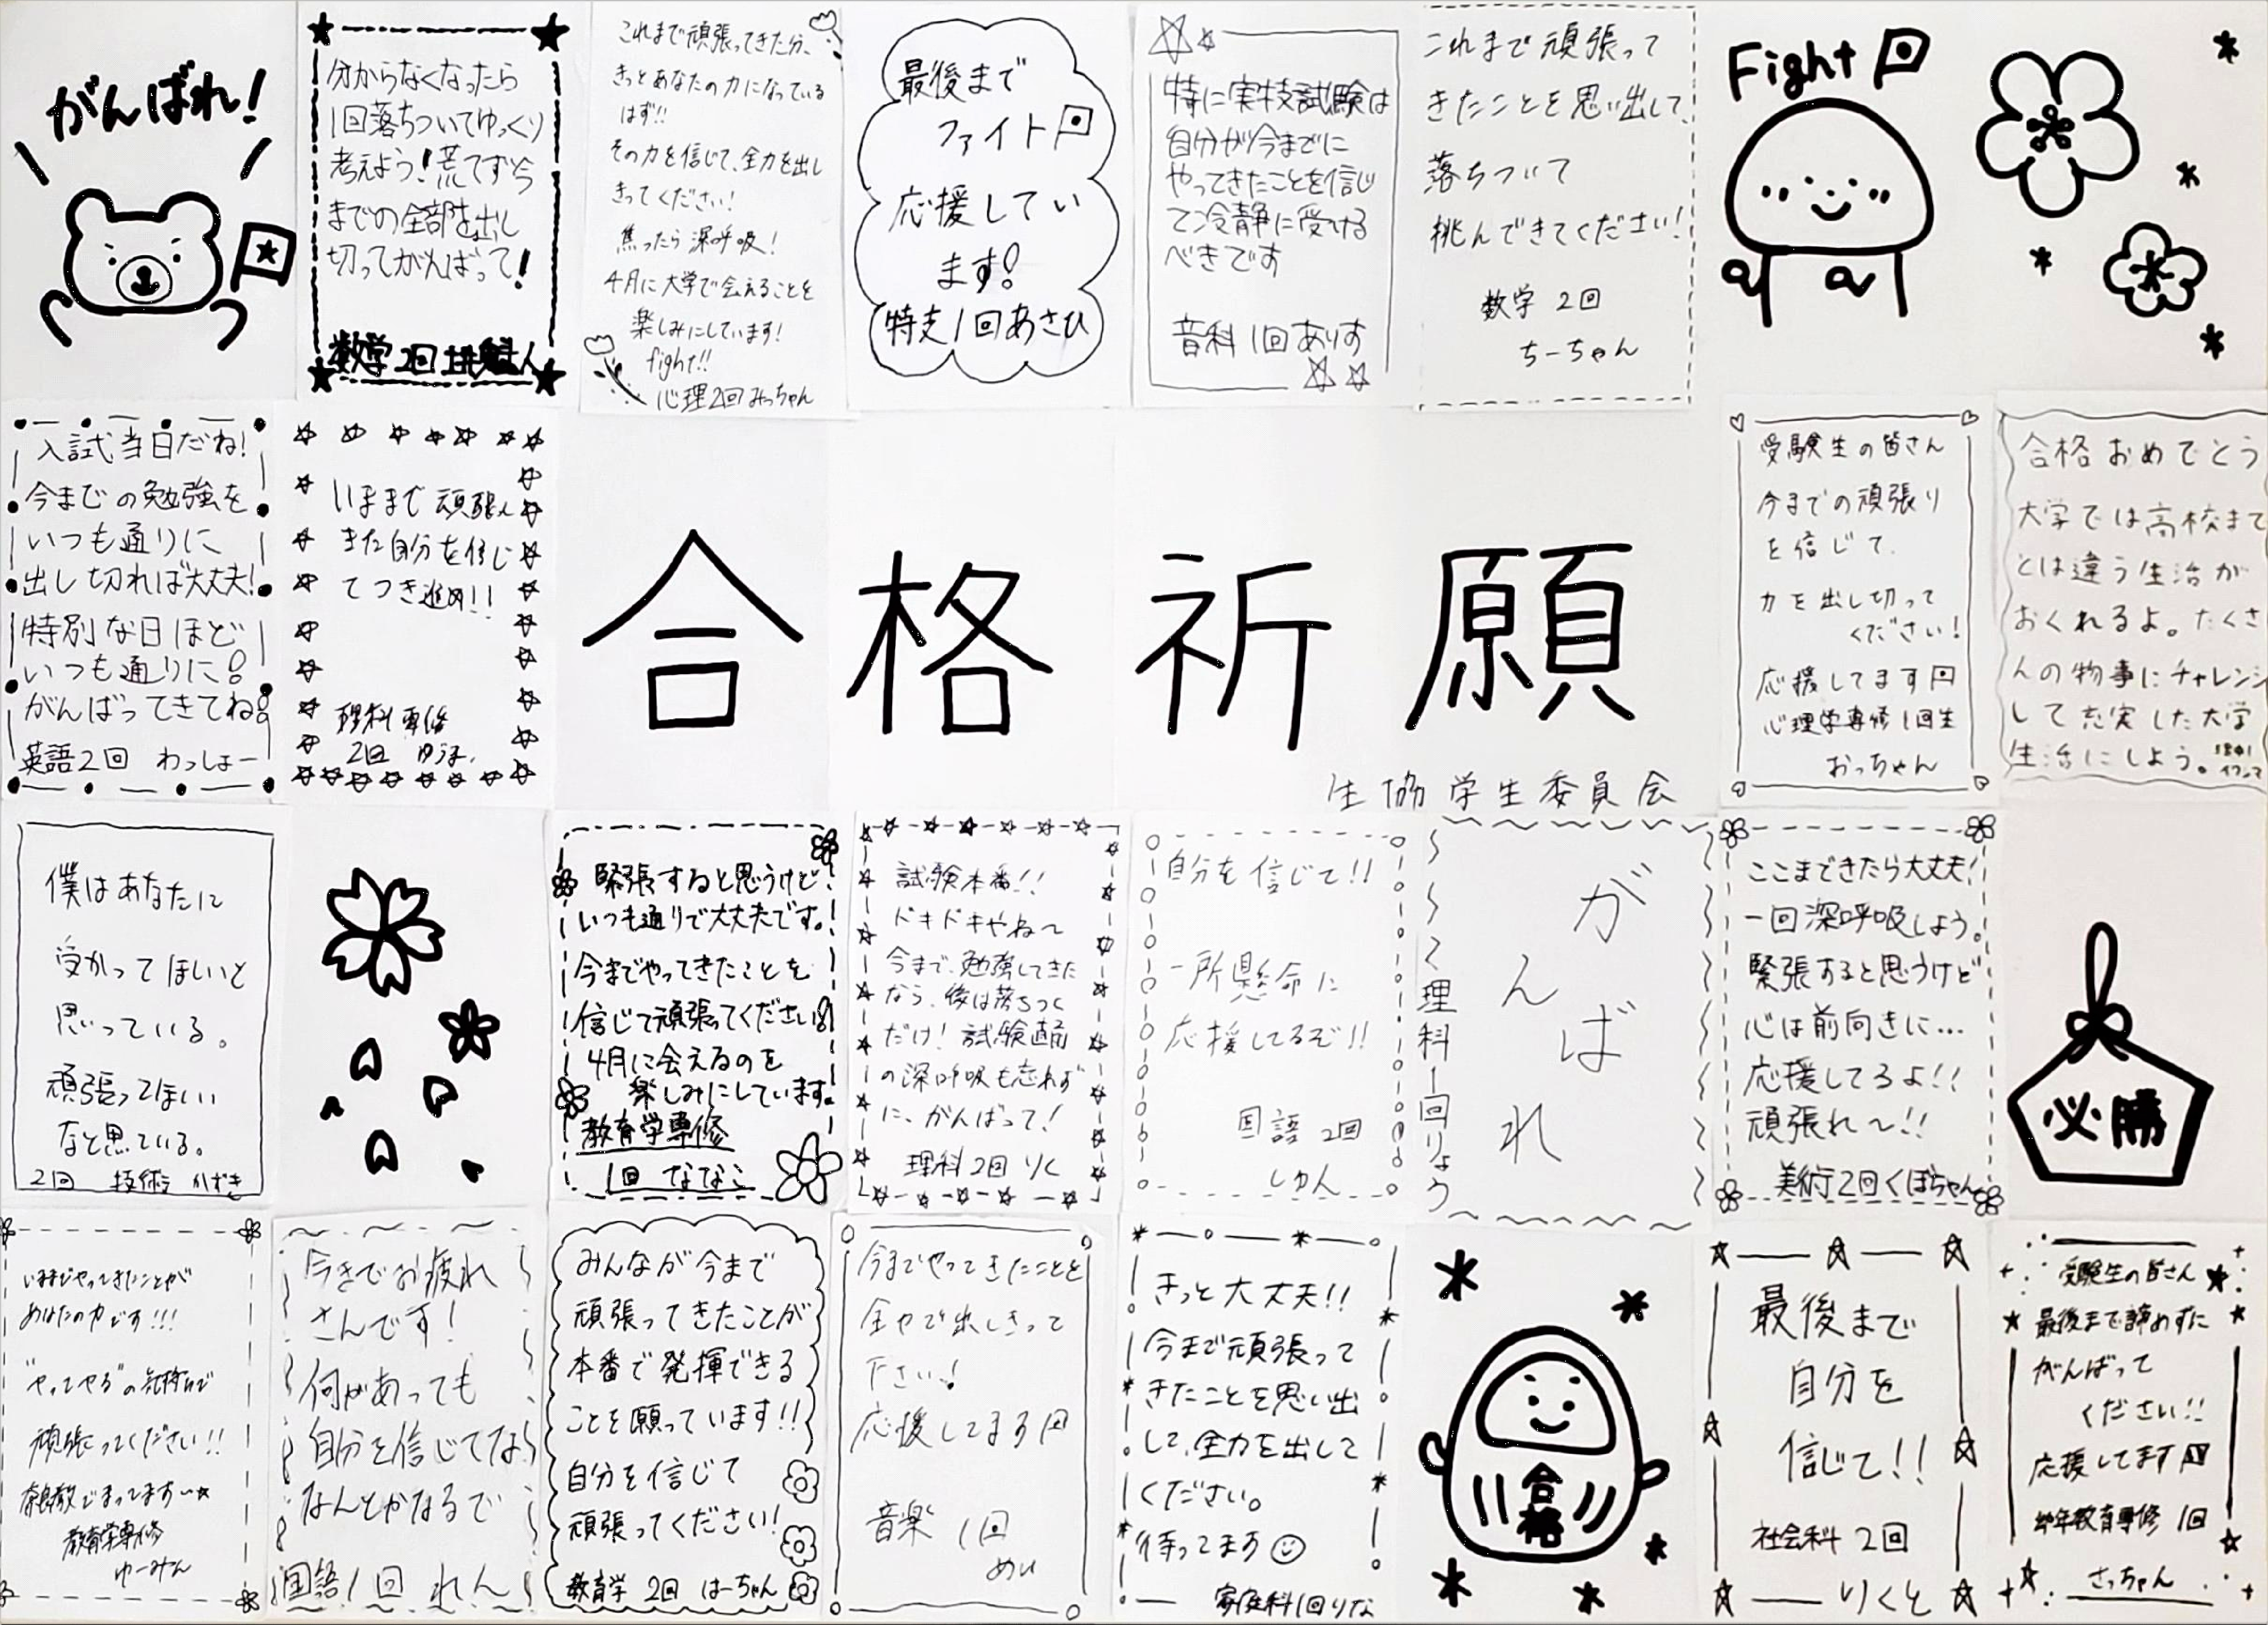 がんばれ!
分からなくなったら
1回落ちついてゆっくり
考えよう!荒てず今
までの全部を出し
切ってがんばって!
数学2回
これまで頑張ってきた分、
きっとあなたの力になっている
はず!!
その力を信じて、全力を出し
きってください!
焦ったら深呼吸!
4月に大学で会えることを
楽しみにしています!
fight!!
心理2回みっちゃん
最後まで
ファイト
応援してい
ます!
特支1回あさひ
特に実技試験は
自分が今までに
やってきたことを信じ
て冷静に受ける
べきです
音科1回ありす
これまで頑張って
きたことを思い出して、
落ちついて
挑んできてください!
数学2回
ちーちゃん
Fight
入試当日だね!
今までの勉強を
いつも通りに
出し切れば大丈夫!
特別な日ほど
いつも通りに!
がんばってきてね!
英語2回 わっしょー
いままで頑張ん
きた自分を信じ
てつき進め!!
理科専修
2回 ゆうま.
合格祈願
生協学生委員会
受験生の皆さん
今までの頑張り
を信じて、
力を出し切って
ください!
応援してます
心理学専修1回生
おっちゃん
合格おめでとう
大学では高校まで
とは違う生活が
おくれるよ。たくさ
んの物事にチャレンジ
して充実した大学
生活にしよう。
僕はあなたに
受かってほしいと
思っている。
頑張ってほしい
なと思ている。
2回 技術 かずき
緊張すると思うけど
いつも通りで大丈夫です。
今までやってきたことを
信じて頑張ってください!
4月に会えるのを
楽しみにしています。
教育学専修
1回 ななこ
試験本番!!
ドキドキやね〜
今まで、勉強してきた
なら、後は落ちつく
だけ!試験直前
の深呼吸も忘れず
に、がんばって!
理科2回 りく
自分を信じて!!
一所懸命に
応援してるぞ!!
国語2回
しゅん
がんばれ
理科1回りょう
ここまできたら大丈夫!
一回深呼吸しよう。
緊張すると思うけど
心は前向きに…
応援してるよ!!
頑張れ〜!!
美術2回くぼちゃん
必勝
いままでやってきたことが
あなたの力です!!!
"やってやる"の気持ちで
頑張ってください!!
奈良教でまってます〜☆
教育学専修
ゆーみん
今までお疲れ
さんです!
何があっても
自分を信じてな
なんとかなるで
国語1回 れん
みんなが今まで
頑張ってきたことが
本番で発揮できる
ことを願っています!!
自分を信じて
頑張ってください!
教育学 2回 はーちゃん
今までやってきたことを
全力で出しきって
下さい!
応援してます
音楽 1回
めい
きっと大丈夫!!
今まで頑張って
きたことを思い出
して、全力を出して
ください。
待ってます
家庭科1回りな
合格
最後まで
自分を
信じて!!
社会科2回
りくと
受験生の皆さん
最後まで諦めずに
がんばって
ください!!
応援してます
幼年教育専修 1回
さっちゃん